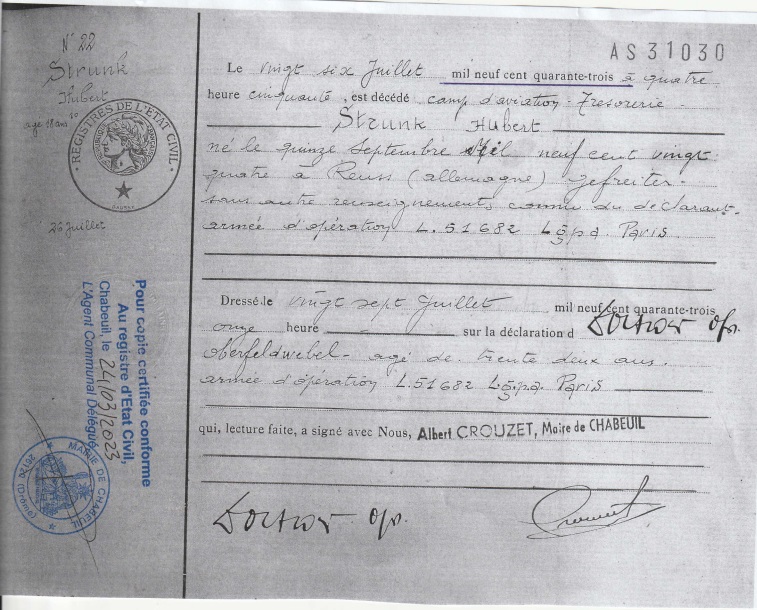 N° 22
Strunk
Hubert
age 18 ans
REGISTRES DE L'ETAT CIVIL
26 Juillet
AS31030
Le vingt six Juillet mil neuf cent quarante-trois à quatre
heure cinquante, est décédé camp d'aviation - Tresorerie -
Strunk Hubert
né le quinze septembre mil neuf cent vingt
quatre à Reuss (allemagne) gefreiter -
sans autre renseignements connu du declarant -
armée d'opération L. 51682 Lgpa. Paris
Dressé le vingt sept Juillet mil neuf cent quarante-trois
onze heure sur la déclaration d
oberfeldwebel - agé de trente deux ans.
armée d'opération L.51682 Lgpa. Paris
qui, lecture faite, a signé avec Nous, Albert CROUZET, Maire de CHABEUIL
Pour copie certifiée conforme
Au registre d'Etat Civil,
Chabeuil, le 24/03/2023
L'Agent Communal Délégué
MAIRIE DE CHABEUIL
26120 (Drôme)